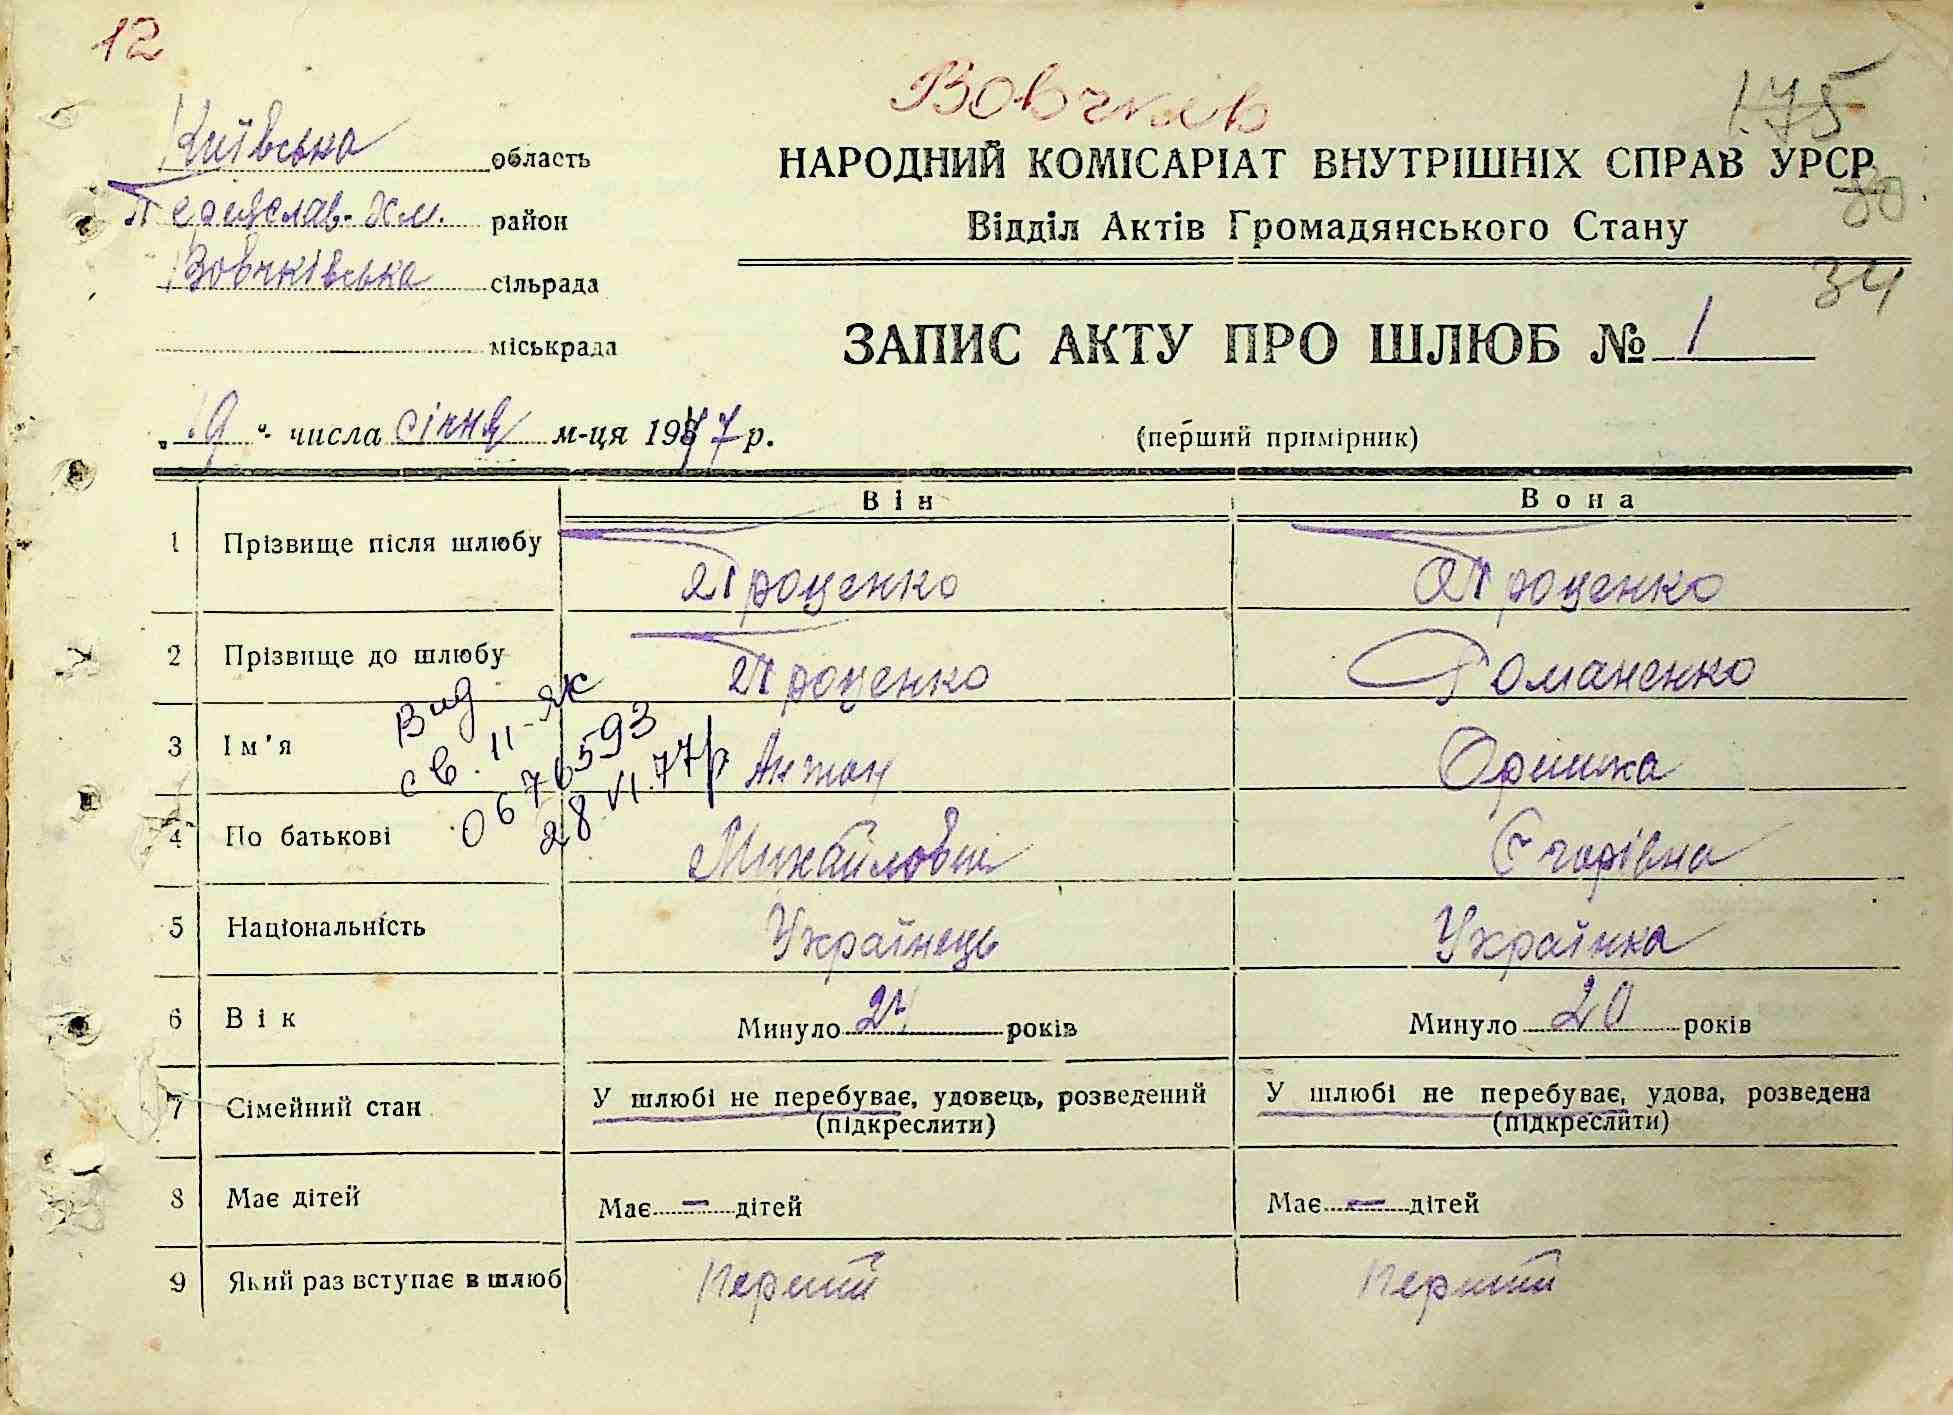 12
Вовчків
175
Київська область
НАРОДНИЙ КОМІСАРІАТ ВНУТРІШНІХ СПРАВ УРСР
80
Переяслав-Хм. район
Відділ Актів Громадянського Стану
Вовчківська сільрада
34
міськрада
ЗАПИС АКТУ ПРО ШЛЮБ № 1
„19“ числа січня м-ця 1947 р.
(перший примірник)
Він Вона
1 Прізвище після шлюбу Проценко Проценко
2 Прізвище до шлюбу Проценко Романенко
Вид
св. II-ЯК
0676593
28.VI.77р
3 Ім'я Антон Оришка
4 По батькові Михайлович Єгорівна
5 Національність Українець Українка
6 Вік Минуло 24 років Минуло 20 років
7 Сімейний стан У шлюбі не перебуває, удовець, розведений У шлюбі не перебуває, удова, розведена
(підкреслити) (підкреслити)
8 Має дітей Має – дітей Має – дітей
9 Який раз вступає в шлюб Перший Перший